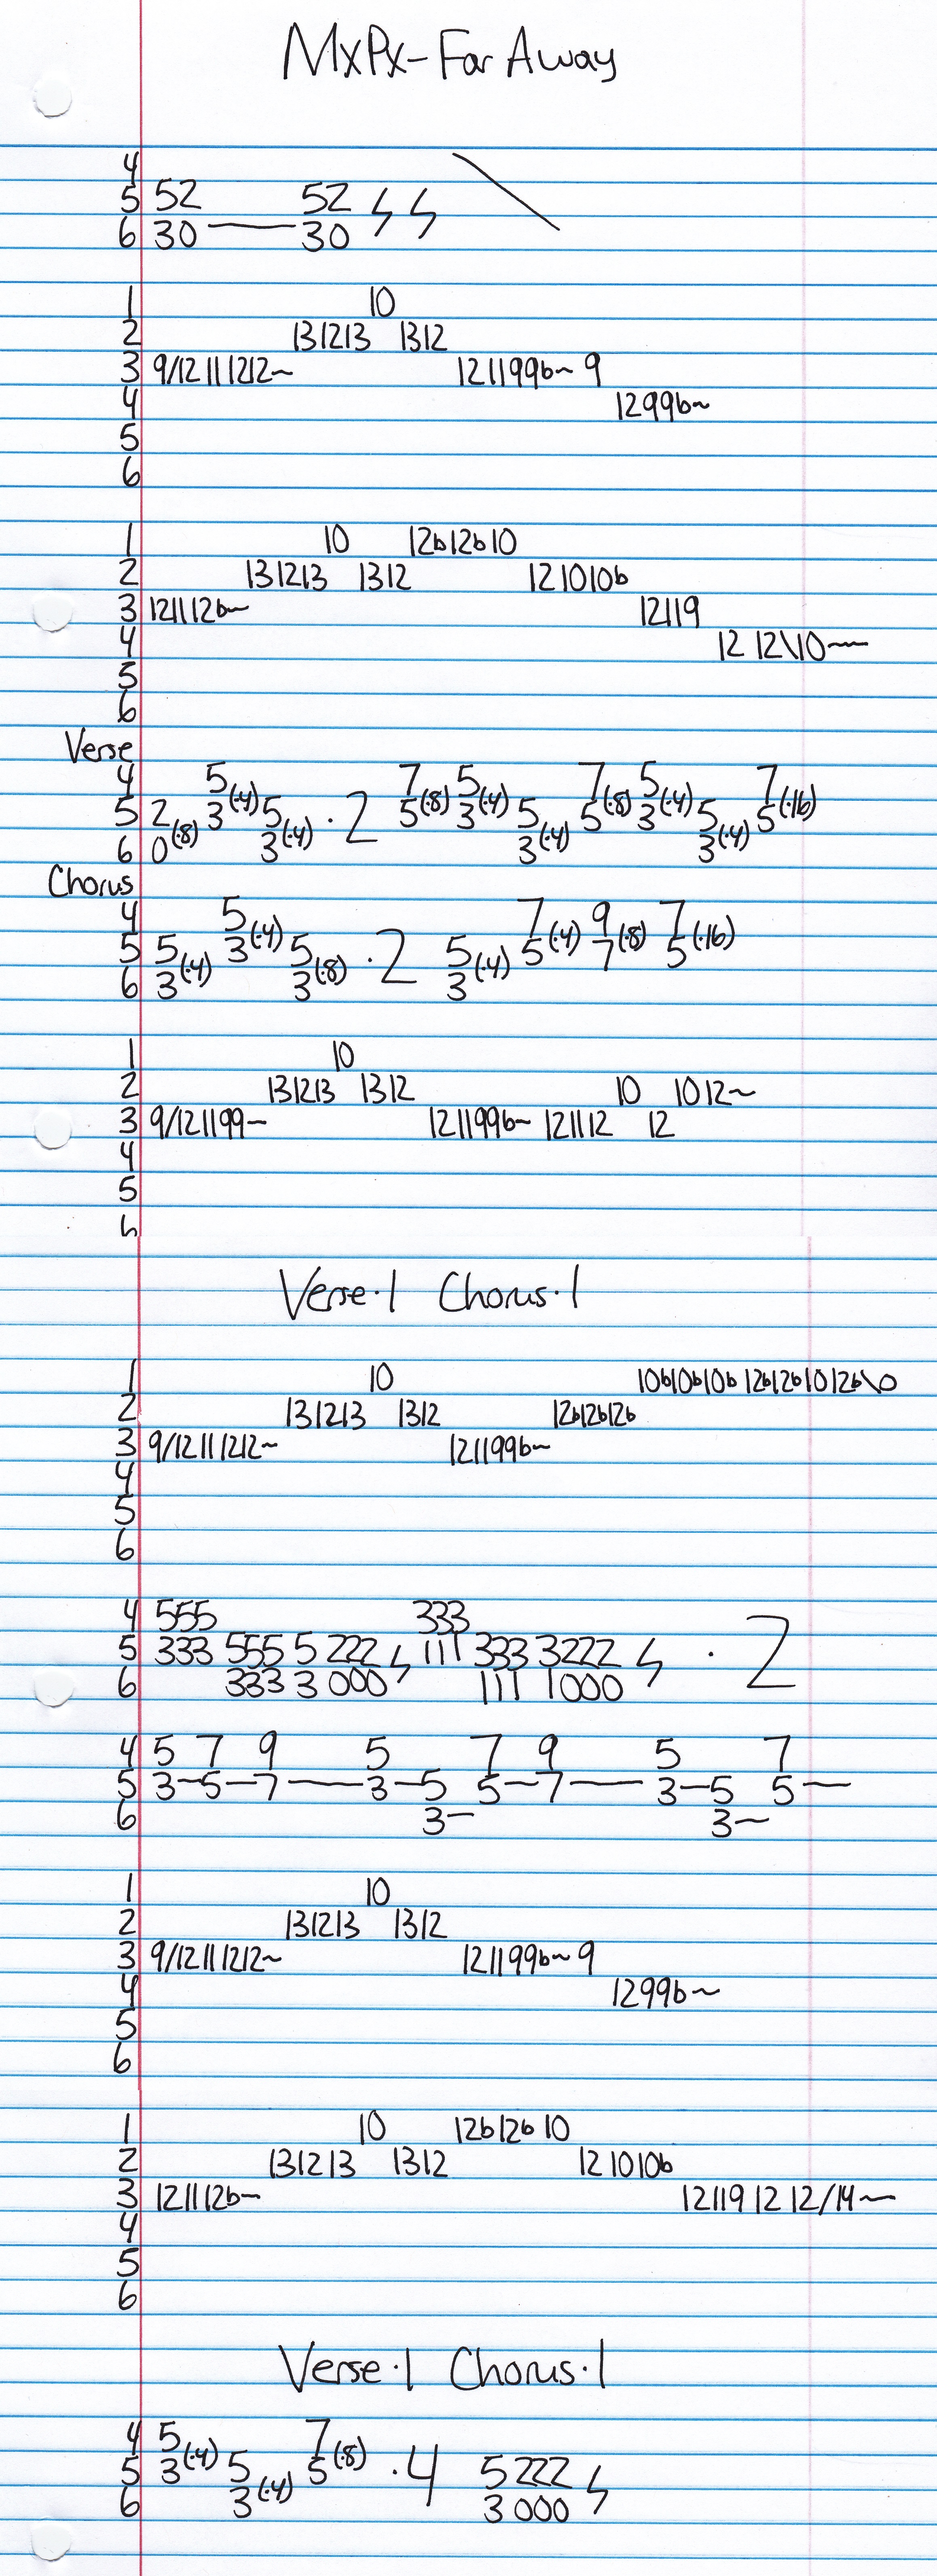 MxPx-Far Away
4
5 52 52
6 30 — 30
1 10
2 131213 1312
3 9/12111212~ 121199b~ 9
4 1299b~
5
6
1 10 12b12b10
2 131213 1312 121010b
3 121112b~ 12119
4 12 12\10~
5
6
Verse
4 5 7 5 7 5 7
5 2(·8) 3(·4) 5 ·2 5(·8) 3(·4) 5 5(·8) 3(·4) 5 5(·16)
6 0 3(·4) 3(·4) 3(·4)
Chorus
4 5 7 9 7
5 5 3(·4) 5 ·2 5 5(·4) 7(·8) 5(·16)
6 3(·4) 3(·8) 3(·4)
1 10
2 131213 1312 10 1012~
3 9/121199~ 121199b~ 121112 12
4
5
6
Verse·1 Chorus·1
1 10 10b10b10b 12b12b1012b\0
2 131213 1312 12b12b12b
3 9/12111212~ 121199b~
4
5
6
4 555 333
5 333 555 5 222 111 333 3222 ·2
6 333 3 000 111 1000
4 5 7 9 5 7 9 5 7
5 3—5—7——3—5 5—7——3—5 5—
6 3— 3~
1 10
2 131213 1312
3 9/12111212~ 121199b~9
4 1299b~
5
6
1 10 12b12b10
2 131213 1312 121010b
3 121112b~ 12119 12 12/14~
4
5
6
Verse·1 Chorus·1
4 5 7
5 3(·4) 5 5(·8) ·4 5222
6 3(·4) 3000